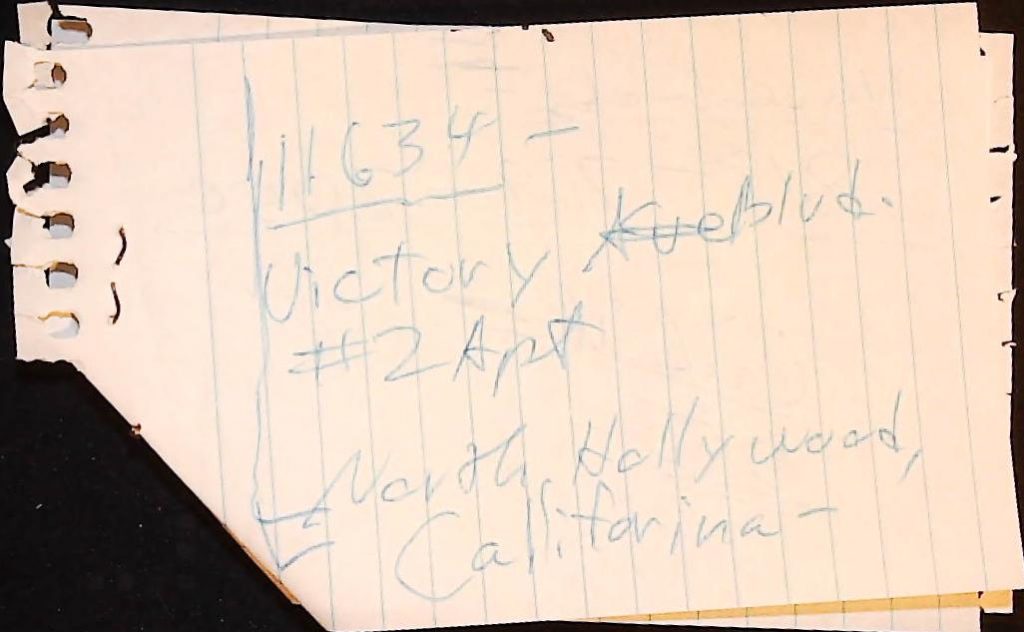 11634 -
Victory Ave Blvd.
#2 Apt
North Hollywood,
Califorina -